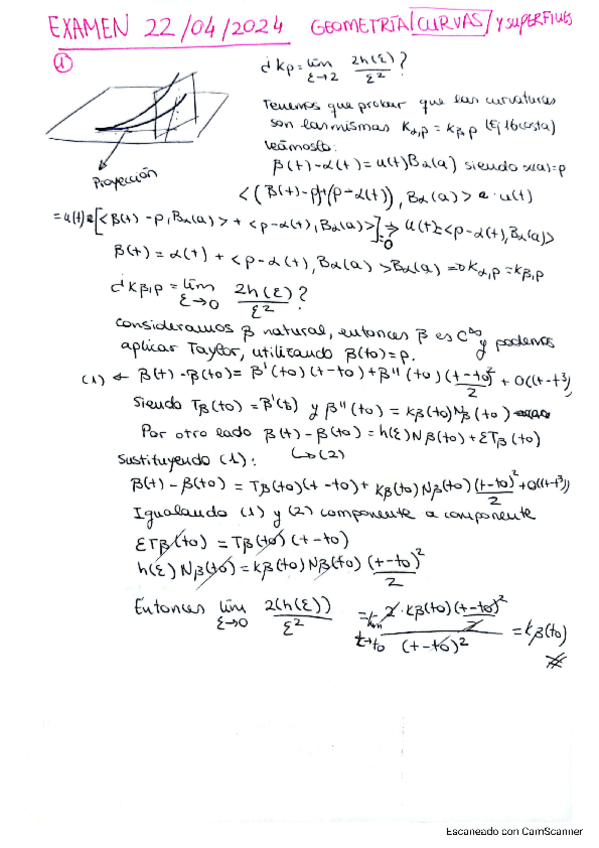 EXAMEN 22/04/2024 GEOMETRÍA CURVAS y SUPERFICIES
① ¿ Kp = lim ε→2 2h(ε)/ε² ?
Tenemos que probar que las curvaturas
son las mismas Kα,p = Kβ,p (Ej 16 costa)
Veámoslo:
Proyección
β(t) - α(t) = u(t) Bα(a) siendo α(a) = p
<(β(t) - p) + (p - α(t)), Bα(a)> = · u(t)
= u(t) [<β(t) - p, Bα(a)> + <p - α(t), Bα(a)>] =0 ⇒ u(t) = <p - α(t), Bα(a)>
β(t) = α(t) + <p - α(t), Bα(a)> Bα(a) ⇒ Kα,p = Kβ,p
¿ Kβ,p = lim ε→0 2h(ε)/ε² ?
Consideramos β natural, entonces β es C∞ y podemos
aplicar Taylor, utilizando β(t0) = p.
(1) ← β(t) - β(t0) = β'(t0)(t - t0) + β''(t0) (t - t0)²/2 + O((t - t³)
Siendo Tβ(t0) = β'(t) y β''(t0) = Kβ(t0) Nβ(t0)
Por otro lado β(t) - β(t0) = h(ε) Nβ(t0) + ε Tβ(t0)
↳ (2)
Sustituyendo (1):
β(t) - β(t0) = Tβ(t0)(t - t0) + Kβ(t0) Nβ(t0) (t - t0)²/2 + O((t - t³))
Igualando (1) y (2) componente a componente
ε Tβ(t0) = Tβ(t0)(t - t0)
h(ε) Nβ(t0) = Kβ(t0) Nβ(t0) (t - t0)²/2
Entonces lim ε→0 2(h(ε))/ε² = lim t→t0 2 · Kβ(t0) (t - t0)²/2 / (t - t0)² = Kβ(t0)
Escaneado con CamScanner